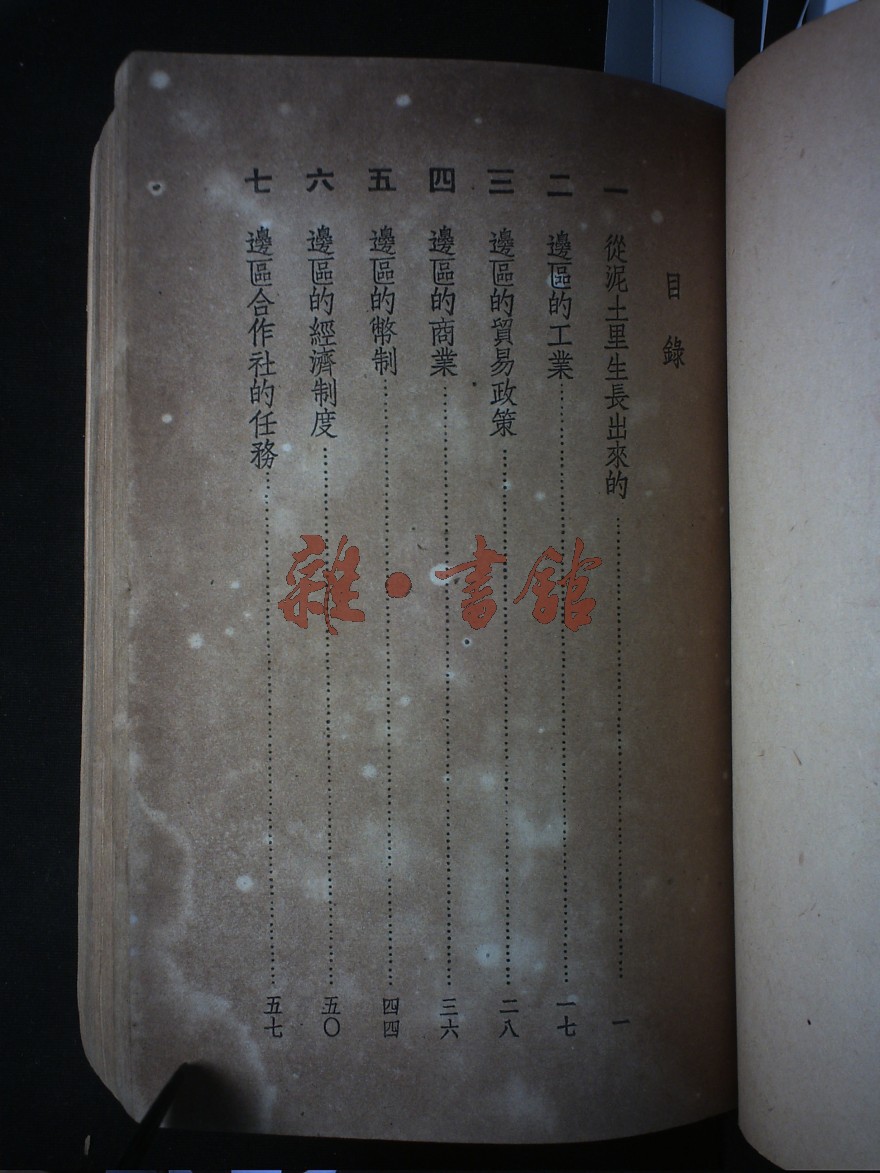 目錄
一 從泥土里生長出來的 一
二 邊區的工業 一七
三 邊區的貿易政策 二八
四 邊區的商業 三六
五 邊區的幣制 四四
六 邊區的經濟制度 五〇
七 邊區合作社的任務 五七
雜·書館